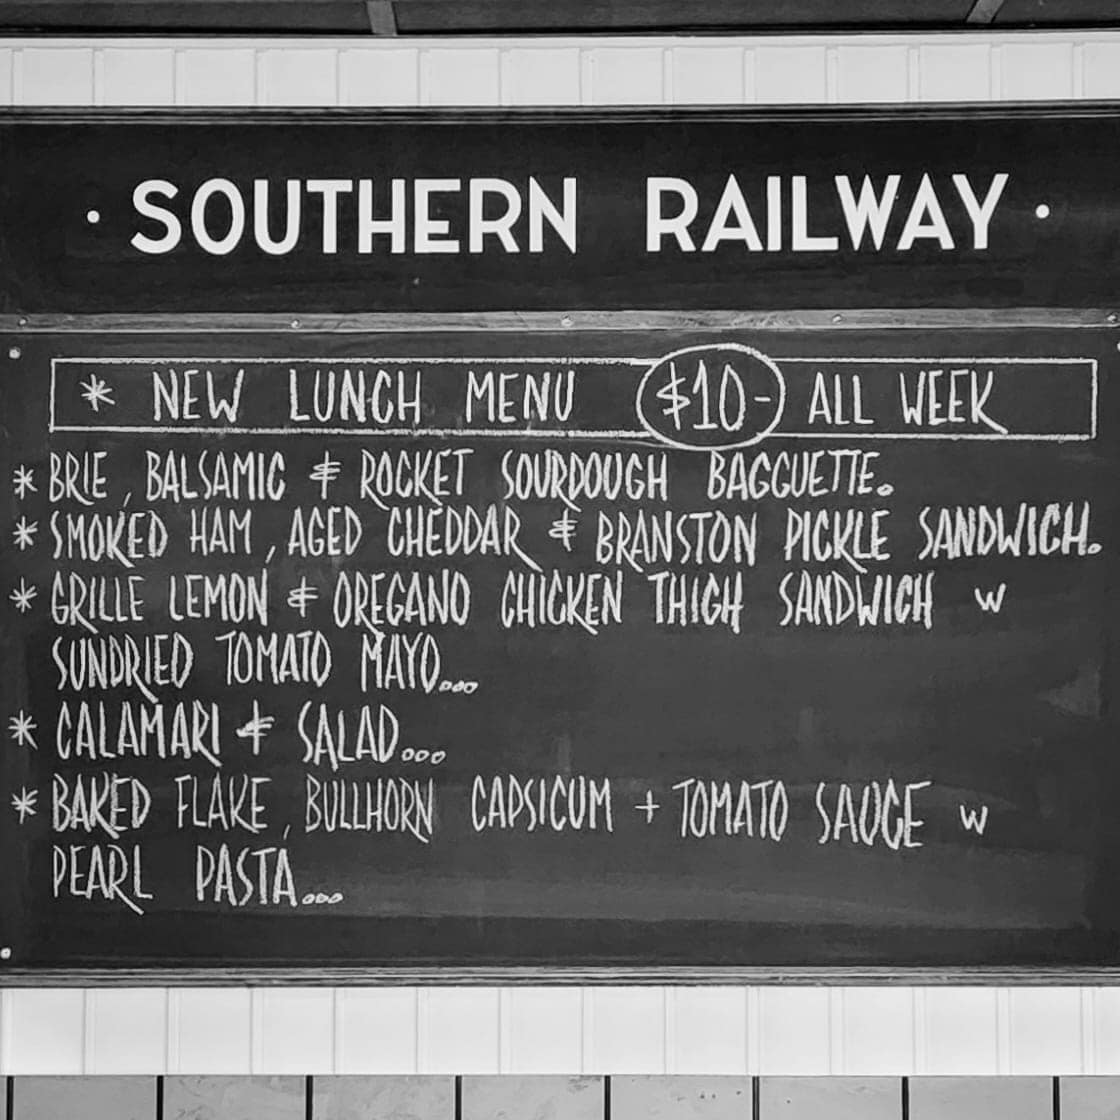 · SOUTHERN RAILWAY ·
* NEW LUNCH MENU $10- ALL WEEK
* BRIE, BALSAMIC & ROCKET SOURDOUGH BAGGUETTE.
* SMOKED HAM, AGED CHEDDAR & BRANSTON PICKLE SANDWICH.
* GRILLE LEMON & OREGANO CHICKEN THIGH SANDWICH W
SUNDRIED TOMATO MAYO...
* CALAMARI & SALAD...
* BAKED FLAKE, BULLHORN CAPSICUM + TOMATO SAUCE W
PEARL PASTA...